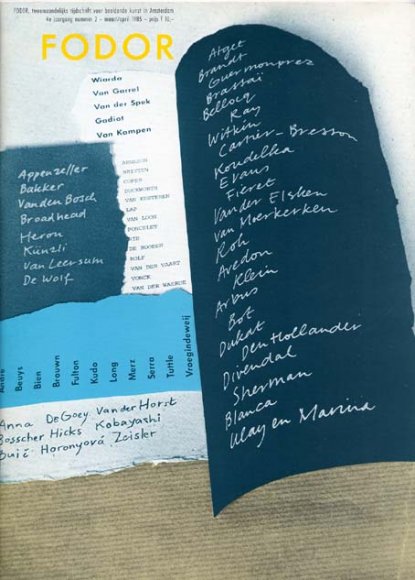 FODOR, tweemaandelijks tijdschrift voor beeldende kunst in Amsterdam
4e jaargang nummer 2 - maart/april 1985 - prijs f 10,-
FODOR
Wiarda
Van Garrel
Van der Spek
Gadiot
Van Kampen
Appenzeller
Bakker
Vanden Bosch
Broadhead
Heron
Künzli
Van Leersum
De Wolf
COPER
DUCKWORTH
VAN KESTEREN
LAP
VAN LOON
PONCELET
RIE
DE ROODEN
ROLF
VAN DER VAART
YORCK
VAN DER WAERDE
Andre
Beuys
Bien
Brouwn
Fulton
Kudo
Long
Merz
Serra
Tuttle
Vroegindeweij
Anna DeGoey Van der Horst
Bosscher Hicks Kobayashi
Buić Horonyová Zeisler
Atget
Brandt
Guermonprez
Brassaï
Bellocq
Ray
Witkin
Cartier-Bresson
Koudelka
Evans
Fieret
Vander Elsken
van Moerkerken
Roh
Avedon
Klein
Arbus
Bot
Dukat
Den Hollander
Divendal
Sherman
Blanca
Ulay en Marina